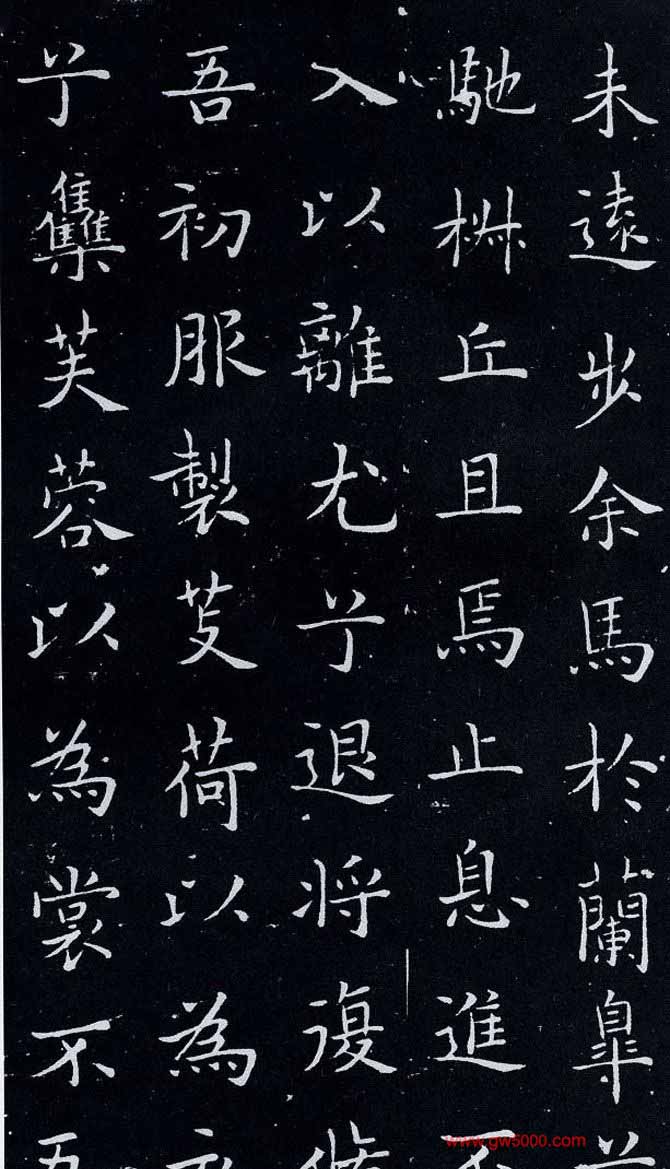 未遠步余馬於蘭皐
馳椒丘且焉止息進不
入以離尤兮退將復
吾初服製芰荷以為
兮雧芙蓉以為裳不
www.gw5000.com